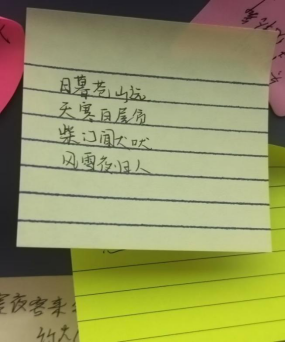 日暮苍山远
天寒白屋贫
柴门闻犬吠
风雪夜归人
夜客来